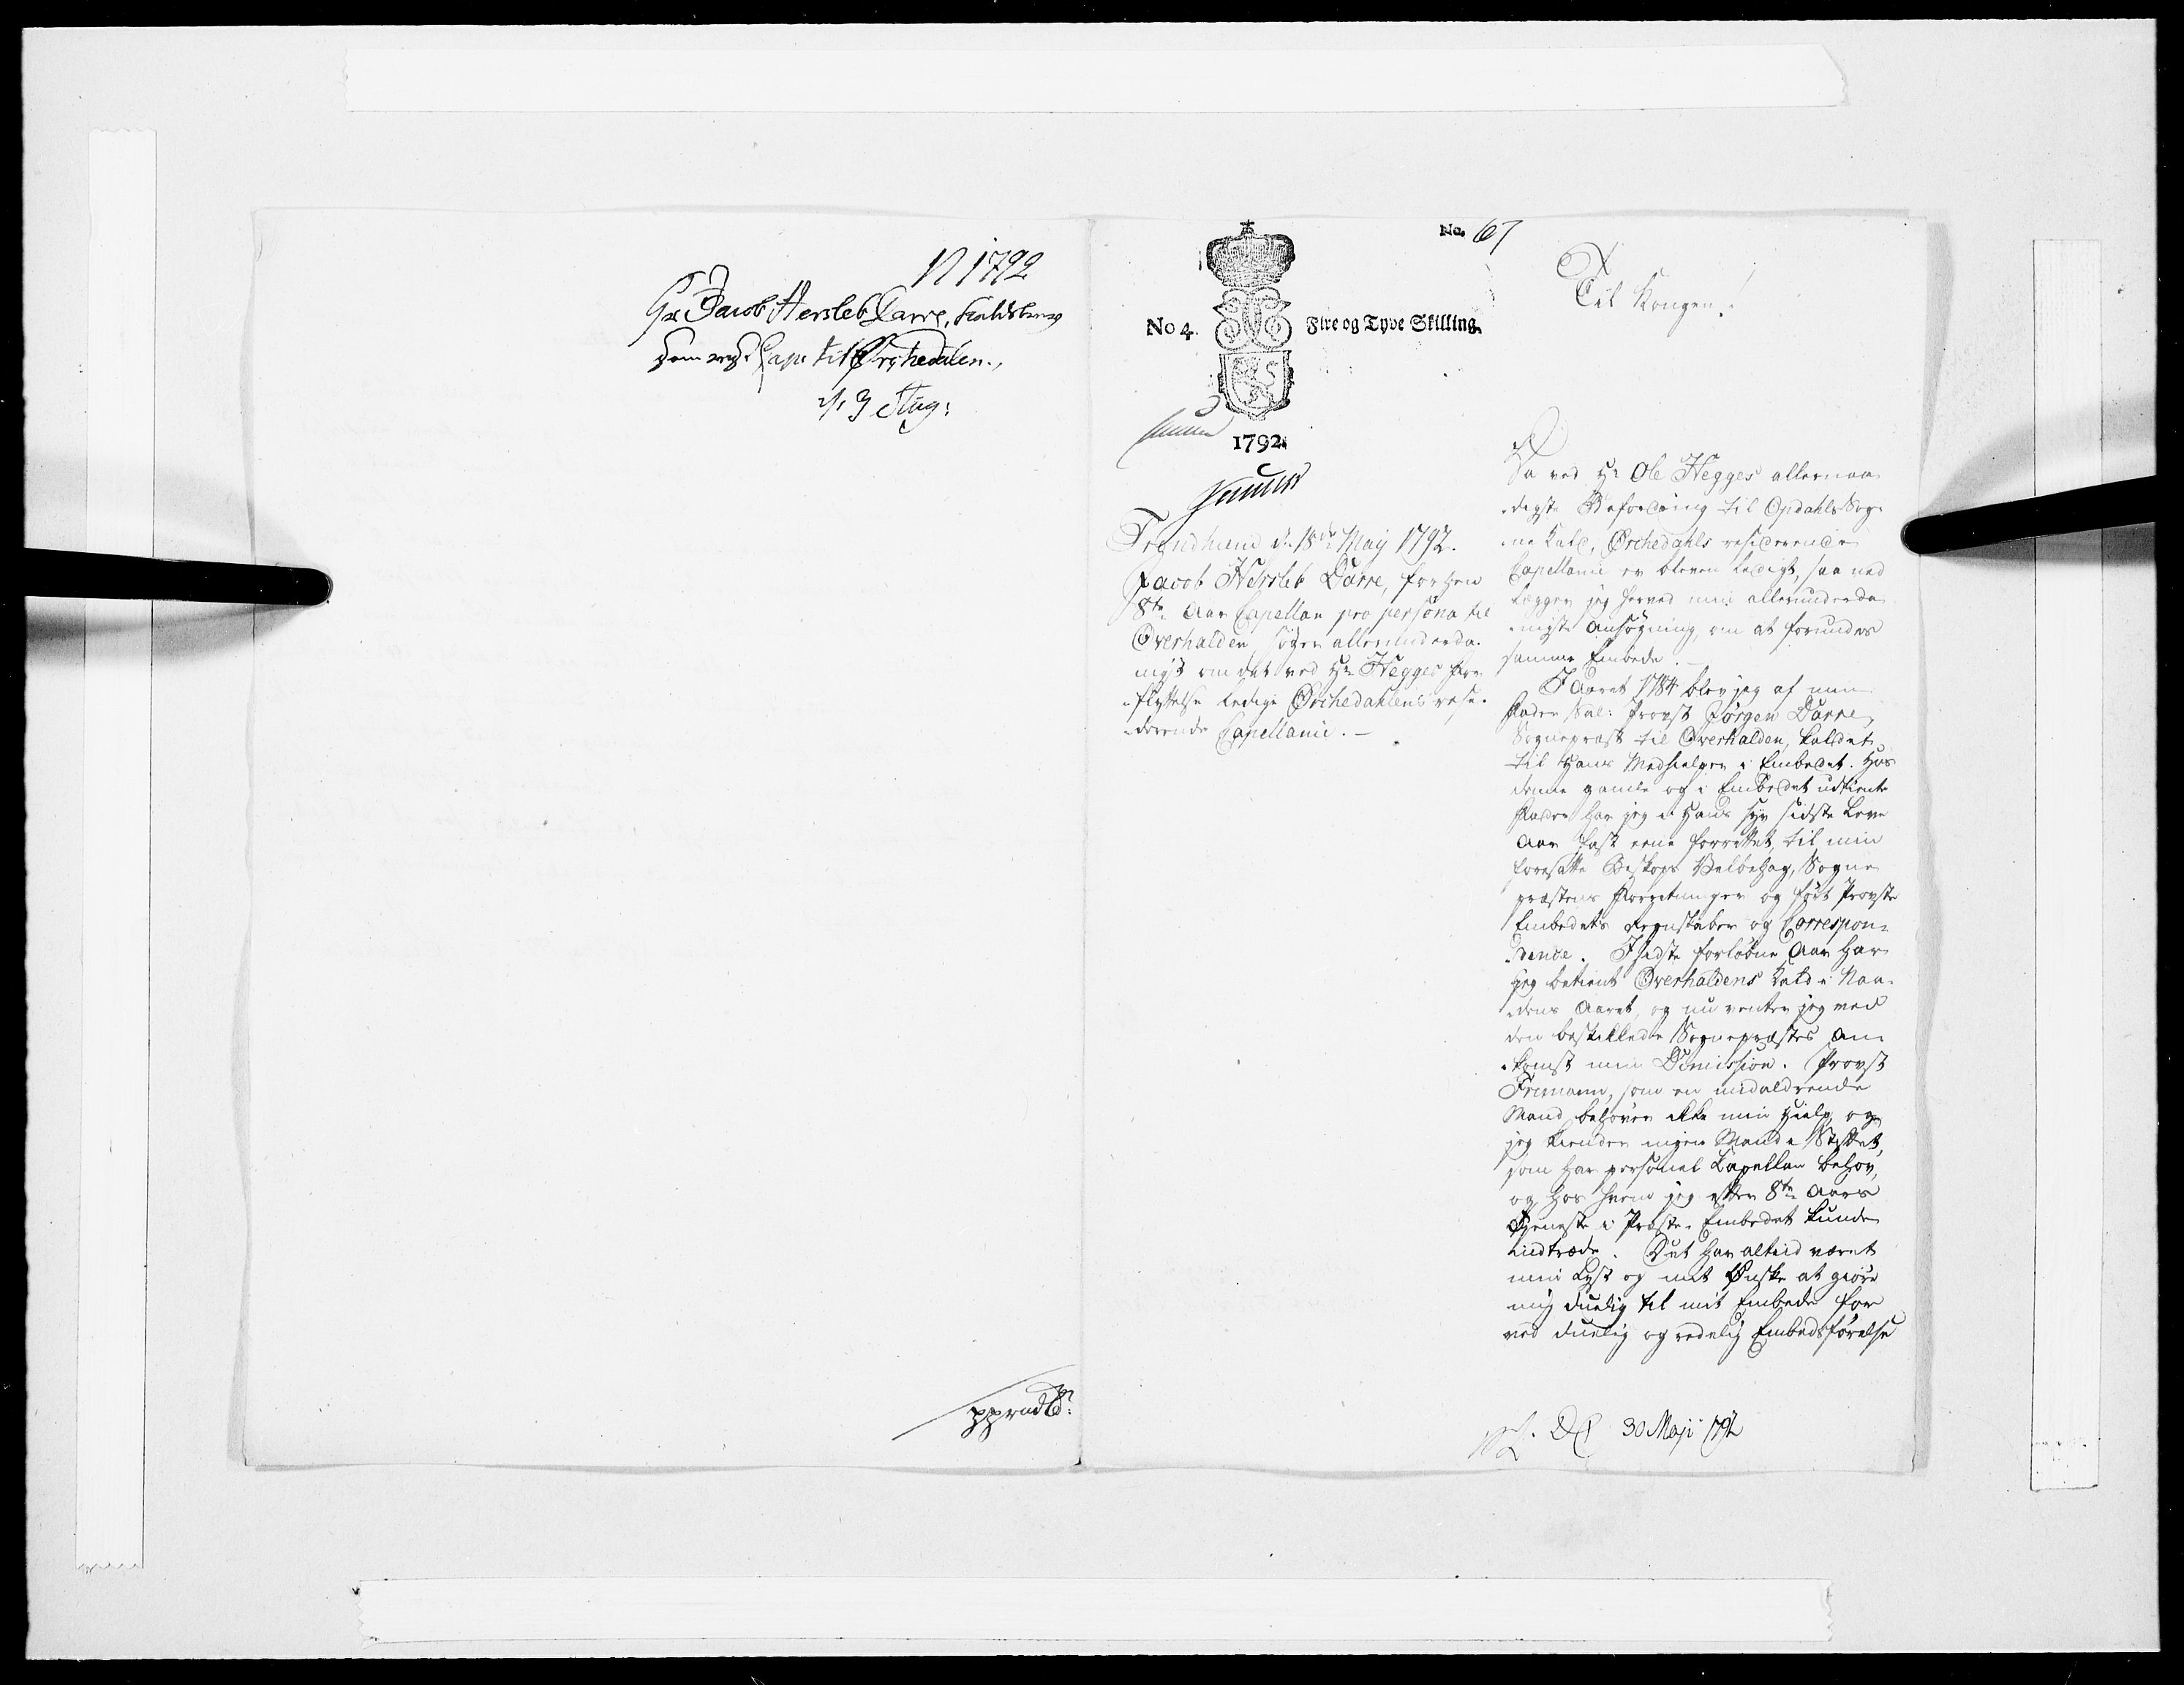 N 1792
Hr Jacob Hersleb Darre, Kaldsbrev
som resd. Cap. til Ørchedalen.
d. 9 Aug:
No. 67
No 4. Fire og Tyve Skilling.
1792.
Trondhiem d. 18de May 1792.
Jacob Hersleb Darre, forhen
8te Aar Capellan pro persona til
Overhalden, søger allerunderda-
nigst om det ved Hr. Hegges for-
flyttelse ledige Ørchedahlens resi-
derende Capellanie.
Til Kongen!
Da ved Hr Ole Hegges allernaa-
digste Befordring til Opdahls Sog-
ne Kald, Ørchedahls residerende
Capellanie er bleven ledigt, saa ned
lægger jeg herved min allerunderda-
nigste Ansøgning, om at forundes
samme Embede.
I Aaret 1784 blev jeg af min
Fader Sal: Provst Jørgen Darre,
Sognepræst til Overhalden, kaldet
til Hans Medhielper i Embedet. Hos
denne gamle og i Embedet udtiente
Fader har jeg i Hans syv sidste Leve
Aar fast eene forrettet, til min
foresatte Biskops Velbehag, Sogne
præstens Forretninger og ført Provste
Embedets Regnskaber og Correspon-
dence. I sidste forløbne Aar har
jeg betient Overhaldens Kald i Naa-
dens Aaret, og nu venter jeg med
den beskikkede Sognepræstes An-
komst min Dimission. Provst
Friemann, som en midaldrende
Mand behøver ikke min Hielp, og
jeg kiender ingen Mand i Stiftet,
som har personel Capellan behov,
og hos hvem jeg efter 8te Aars
Tjeneste i Præste-Embedet kunde
indtræde. Det har altid været
min Lyst og mit Ønske at giøre
mig duelig til mit Embede for
ved duelig og redelig Embedsførelse
30 Maji 1792